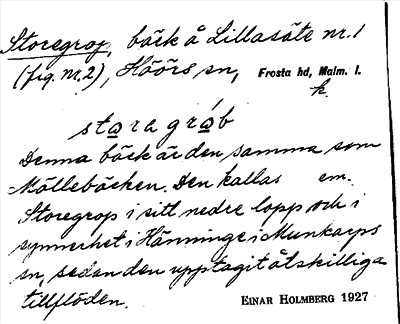 Storegrop, bäck å Lillasäte nr. 1
(fig. nr. 2), Höörs sn, Frosta hd, Malm. l.
k.
stọragrọ́b
Denna bäck är den samma som
Möllebäcken. Den kallas em.
Storegrop i sitt nedre lopp och i
synnerhet i Hänninge i Munkarps
sn, sedan den upptagit åtskilliga
tillflöden. EINAR HOLMBERG 1927